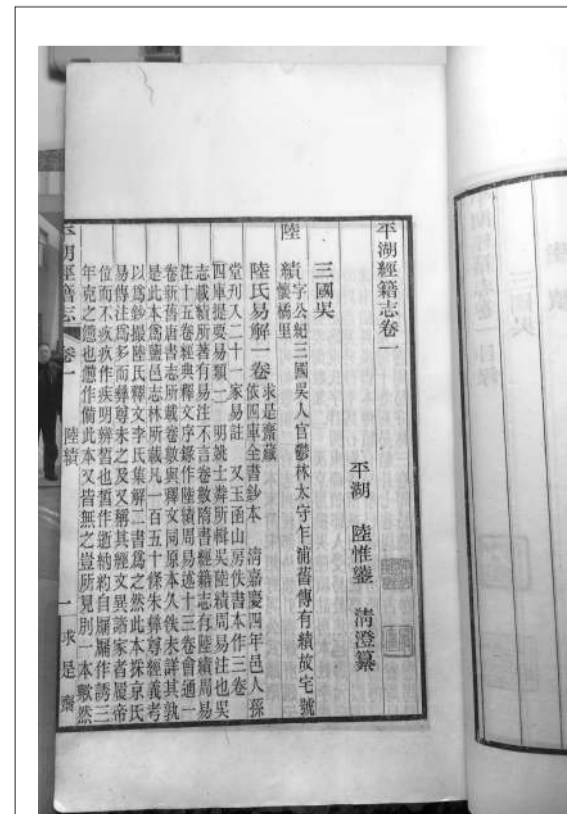 平湖經籍志卷一
平湖　陸惟鍌　清澄纂
三國吳
陸績
字公紀三國吳人官鬱林太守乍浦舊傳有績故宅號
懷橘里
陸氏易解一卷
求是齋藏
依四庫全書鈔本　清嘉慶四年邑人孫
堂刊又二十一家易註　又玉函山房佚書本作三卷
四庫提要易類一　明姚士粦所輯吳陸績周易注也吳
志載績所著有易注不言卷數隋書經籍志有陸績周易
注十五卷經典釋文序錄作陸績周易述十三卷會通一
卷新舊唐書志所載卷數與釋文同原本久佚未詳其孰
是此本爲鹽邑志林所載凡一百五十條朱彝尊經義考
以爲鈔撮陸氏釋文李氏集解二書爲之然此本採京氏
易傳注爲多而彝尊未之及又稱其經文異諸家者履帝
位而不疚疚作疾明辨晳也晳作逝納約自牖牖作誘三
年克之憊也憊作備此本又皆無之豈所見別一本歟然
平湖經籍志　卷一　陸績　一　求是齋